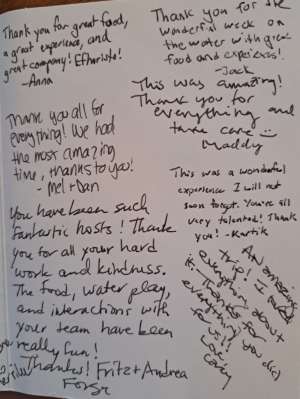 Thank you for great food,
a great experience, and
great company! EFharisto!
-Anna
Thank you for the
wonderful week on
the water with great
food and experiences!
-Jack
This was amazing!
Thank you for
everything and
take care
Maddy
Thank you all for
everything! We had
the most amazing
time, thanks to you!
- Mel + Dan
This was a wonderful
experience I will not
soon forget. You're all
very talented! Thank
you! -Kartik
You have been such
fantastic hosts! Thank
you for all your hard
work and kindness.
The food, water play,
and interactions with
your team have been
really fun!
Thanks! Fritz + Andrea
An amazing
trip! I loved
everything about
it. Thanks for
everything you did
for us!!
Love